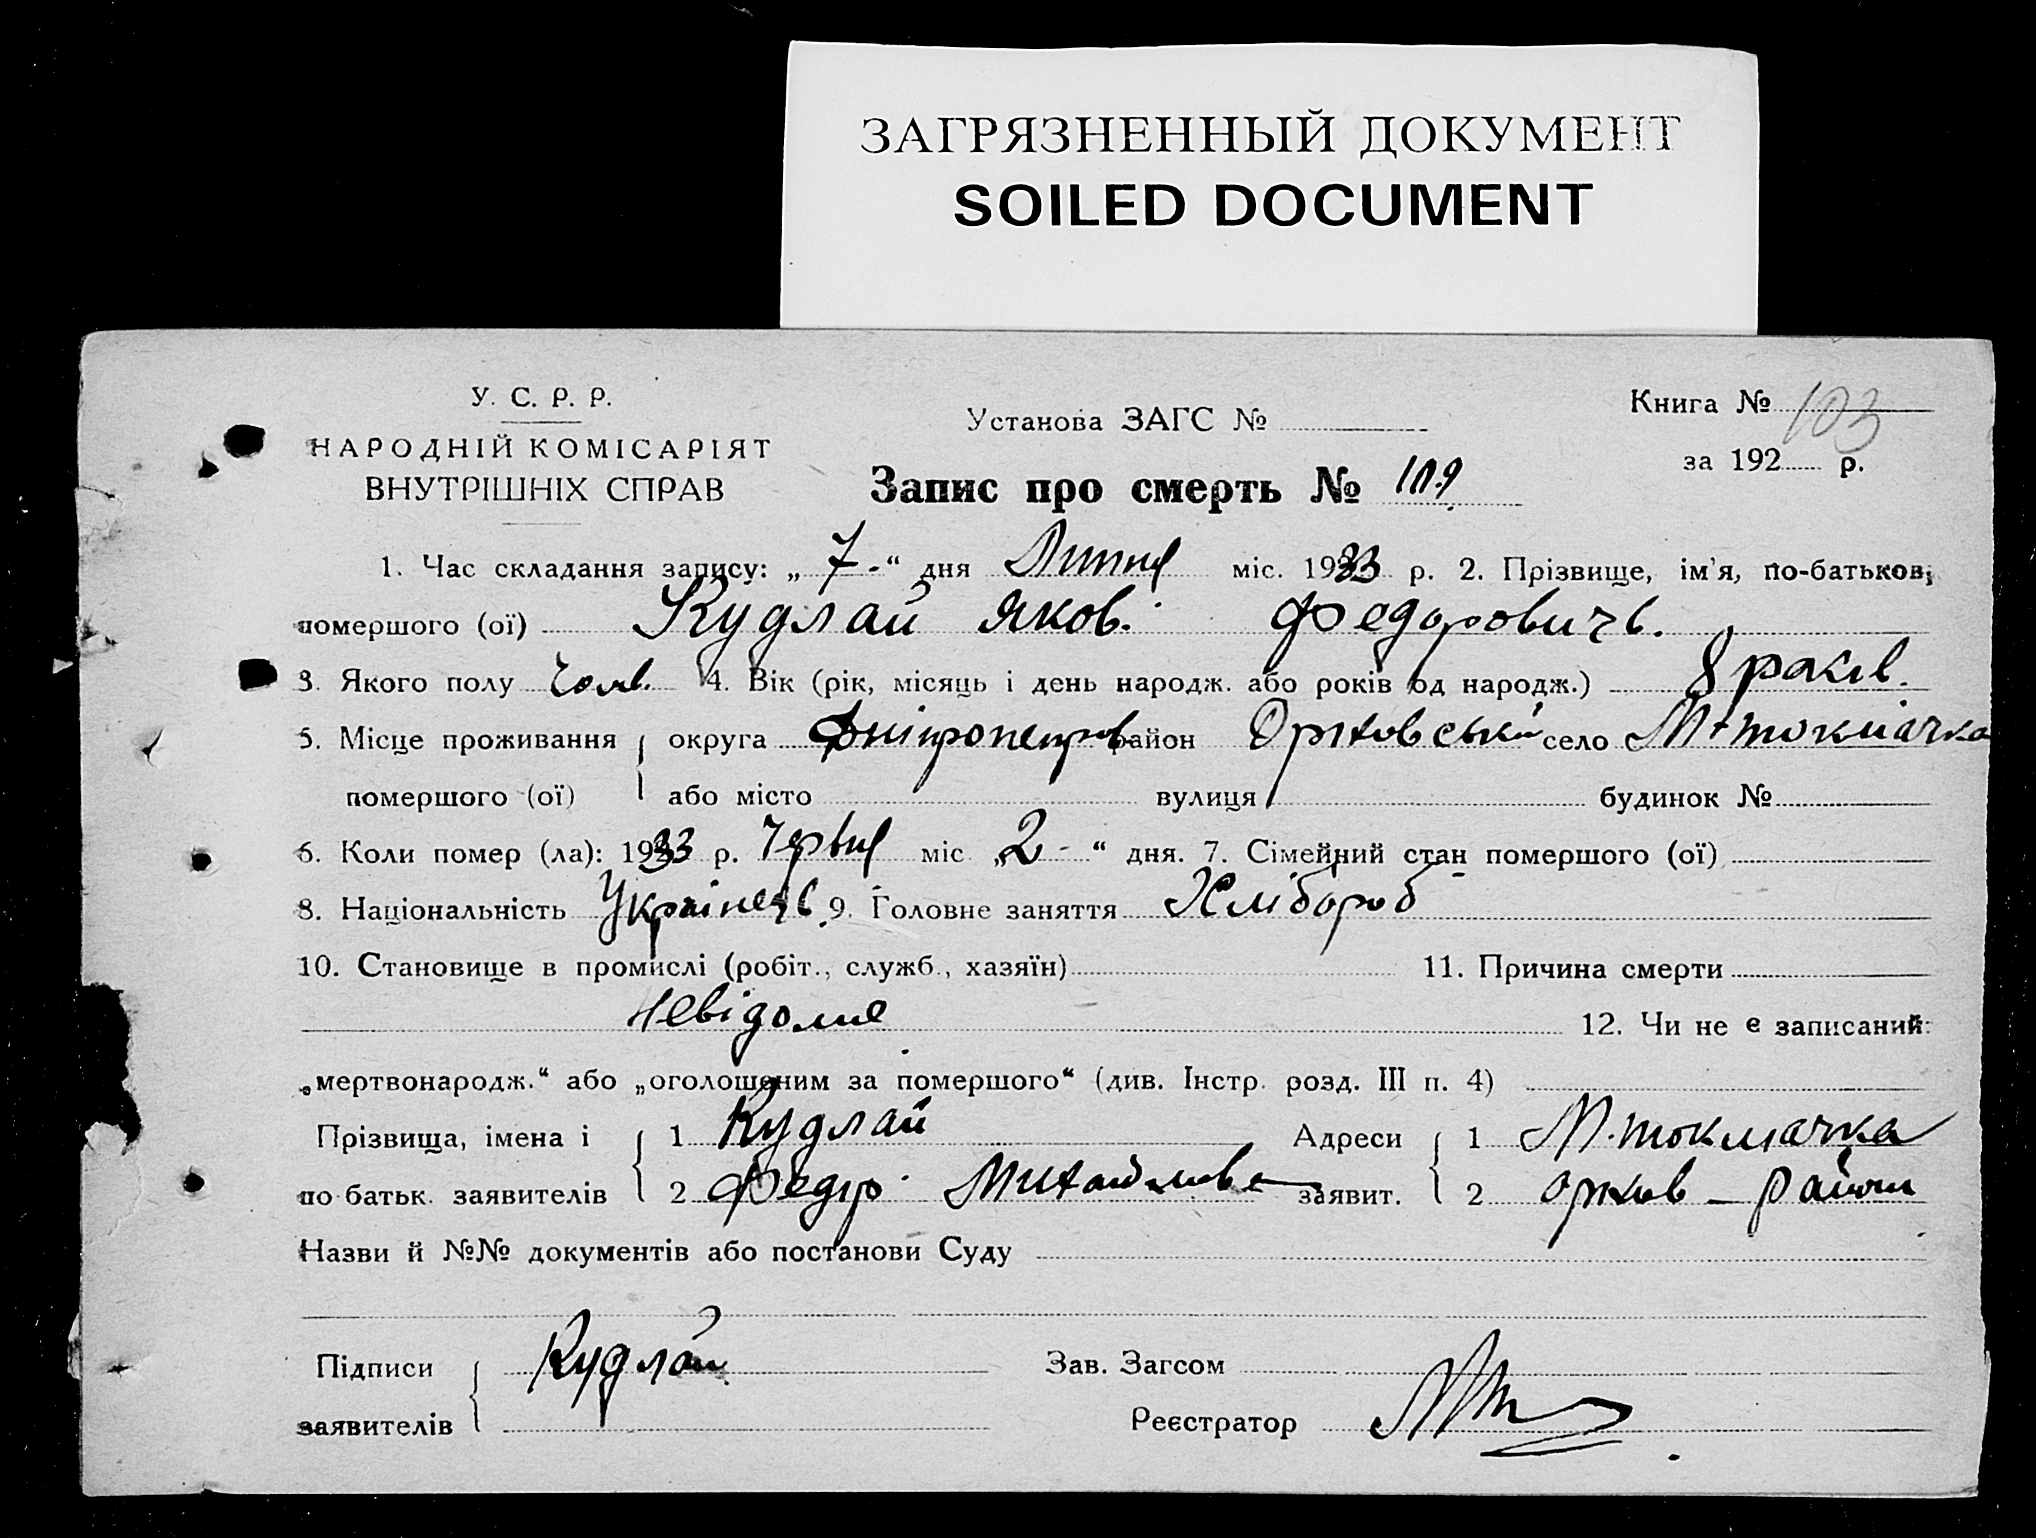 ЗАГРЯЗНЕННЫЙ ДОКУМЕНТ
SOILED DOCUMENT
У. С. Р. Р.
НАРОДНІЙ КОМІСАРІЯТ
ВНУТРІШНІХ СПРАВ
Установа ЗАГС №
Книга № 103
за 192 р.
Запис про смерть № 109
1. Час складання запису: „ 7 “ дня Липня міс. 1933 р. 2. Прізвище, ім'я, по-батькові
помершого (ої) Кудлай Яков Федоровичь.
3. Якого полу чолв. 4. Вік (рік, місяць і день народж. або років од народж.) 8 років.
5. Місце проживання округа Дніпропетров район Оріховський село М-токмачка
помершого (ої) або місто вулиця будинок №
6. Коли помер (ла): 1933 р. Червня міс „ 2 “ дня. 7. Сімейний стан помершого (ої)
8. Національність Українець. 9. Головне заняття Хлібороб
10. Становище в промислі (робіт., служб., хазяїн) 11. Причина смерти
невідоме 12. Чи не є записаний:
„мертвонародж.“ або „оголошеним за помершого“ (див. Інстр. розд. III п. 4)
Прізвища, імена і 1 Кудлай Адреси 1 М-токмачка
по батьк. заявителів 2 Федір заявит. 2 Оріхов – район
Назви й №№ документів або постанови Суду
Підписи Кудлай Зав. Загсом
заявителів Реєстратор